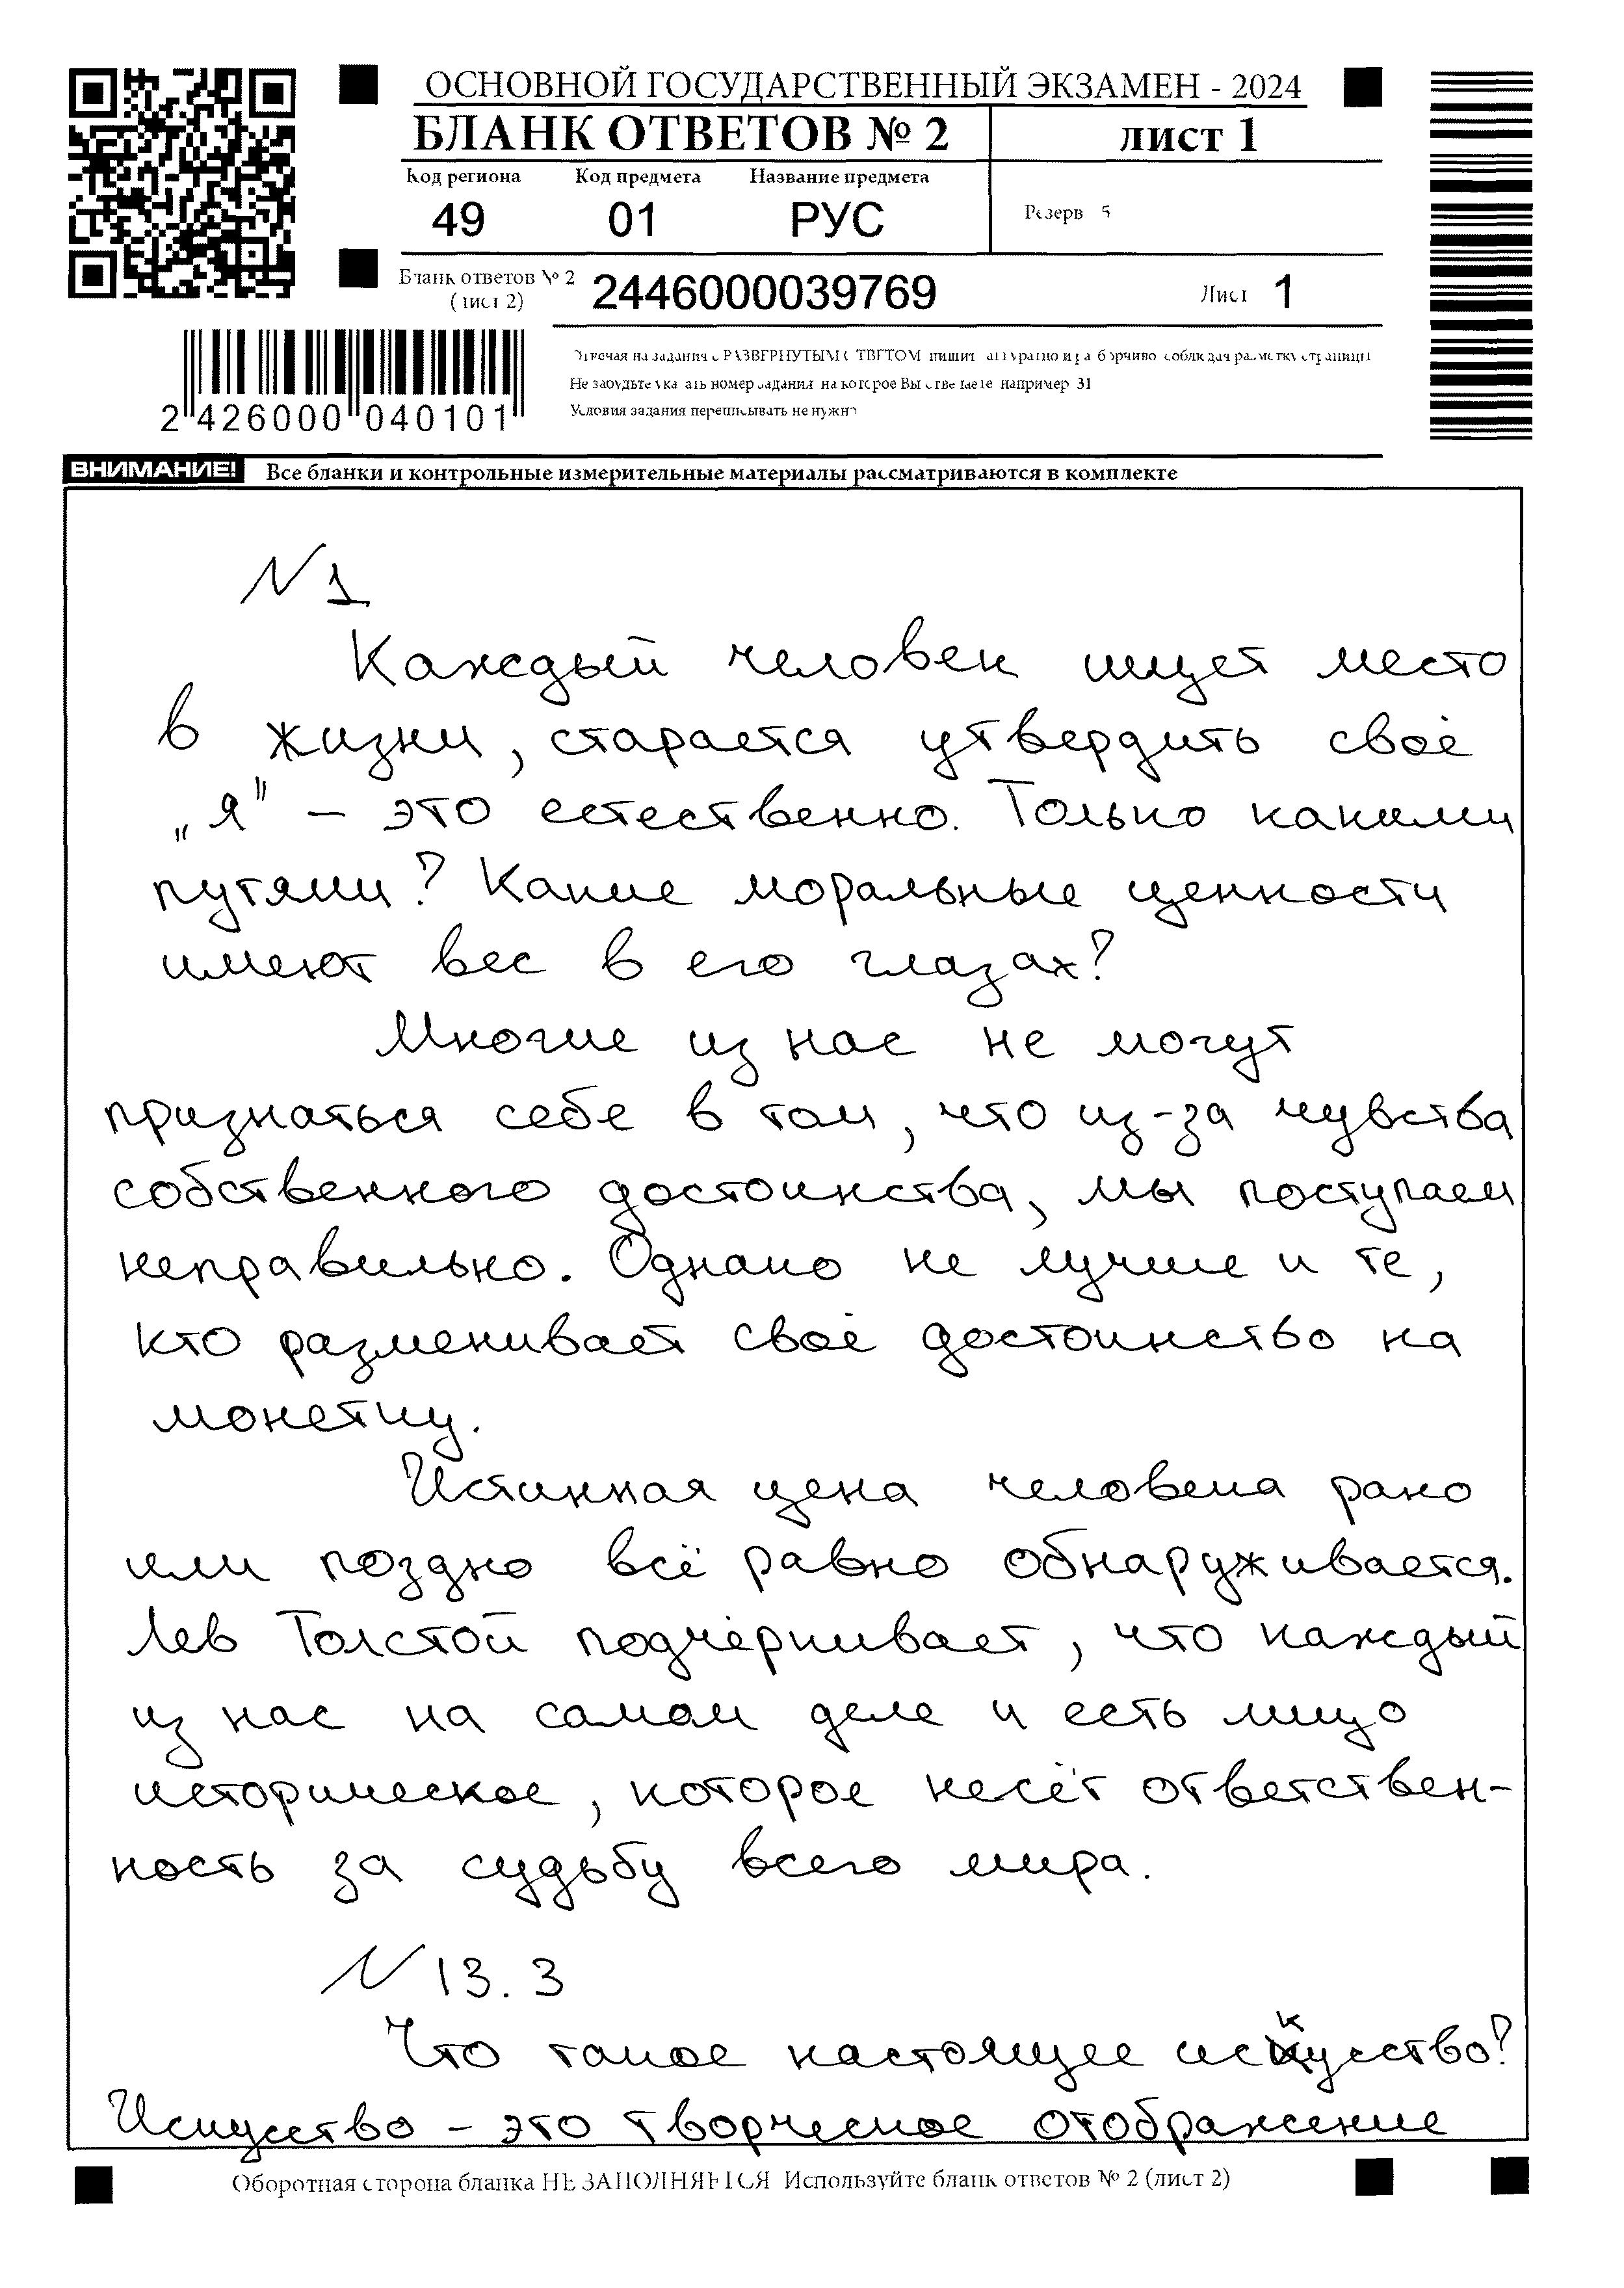 ОСНОВНОЙ ГОСУДАРСТВЕННЫЙ ЭКЗАМЕН - 2024
БЛАНК ОТВЕТОВ № 2
лист 1
Код региона Код предмета Название предмета
49 01 РУС
Резерв 5
Бланк ответов № 2
(лист 2)
2446000039769
Лист 1
2 426000 040101
Отвечая на задания с РАЗВЕРНУТЫМ ОТВЕТОМ пишите аккуратно и разборчиво соблюдая разметку страницы
Не забудьте указать номер задания на которое Вы отвечаете например 31
Условия задания переписывать не нужно
ВНИМАНИЕ! Все бланки и контрольные измерительные материалы рассматриваются в комплекте
N 1
Каждый человек ищет место
в жизни, старается утвердить своё
„я" – это естественно. Только какими
путями? Какие моральные ценности
имеют вес в его глазах?
Многие из нас не могут
признаться себе в том, что из-за чувства
собственного достоинства, мы поступаем
неправильно. Однако не лучше и те,
кто разменивает своё достоинство на
монетку.
Истинная цена человека рано
или поздно всё равно обнаруживается.
Лев Толстой подчёркивает, что каждый
из нас на самом деле и есть лицо
историческое, которое несёт ответствен-
ность за судьбу всего мира.
N 13.3
Что такое настоящее искусство?
Искусство – это творческое отображение
Оборотная сторона бланка НЕ ЗАПОЛНЯЕТСЯ Используйте бланк ответов № 2 (лист 2)